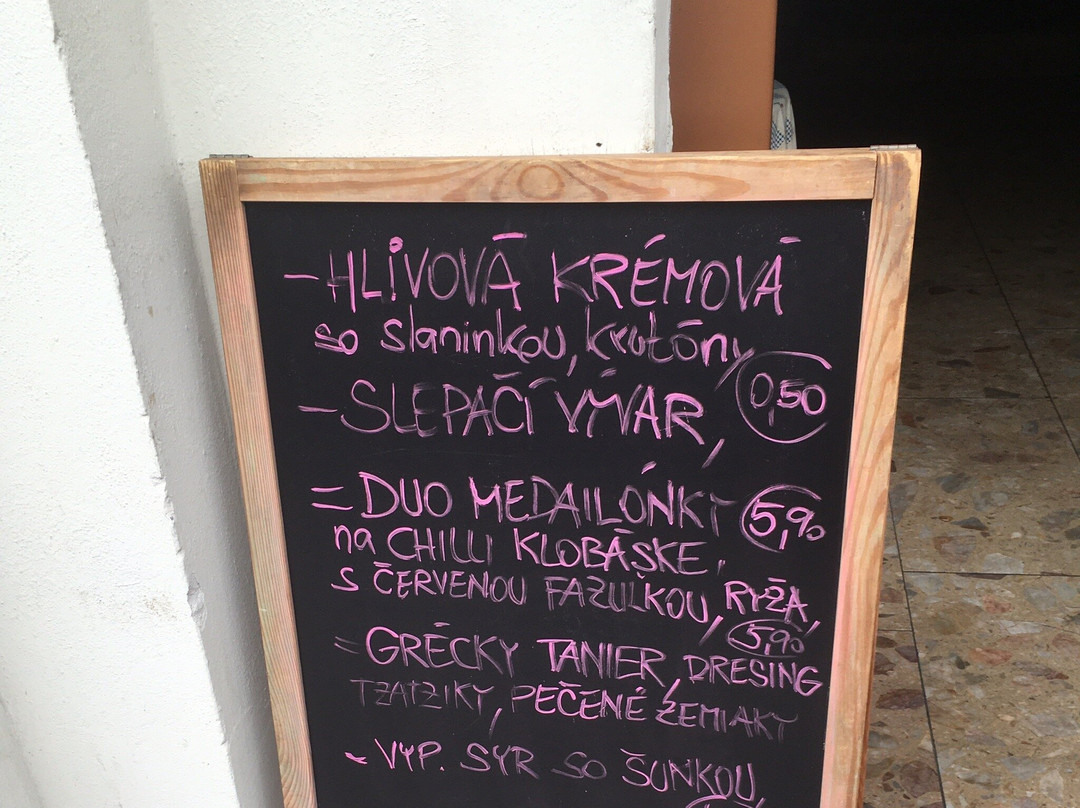 - HLIVOVÁ KRÉMOVÁ
so slaninkou, krutóny
0,50
- SLEPAČÍ VÝVAR,
= DUO MEDAILÓNKY 5,90
na CHILLI KLOBÁSKE,
S ČERVENOU FAZUĽKOU, RYŽA,
5,90
= GRÉCKY TANIER, DRESING
TZATZIKY, PEČENÉ ZEMIAKY
- VYP. SYR SO ŠUNKOU